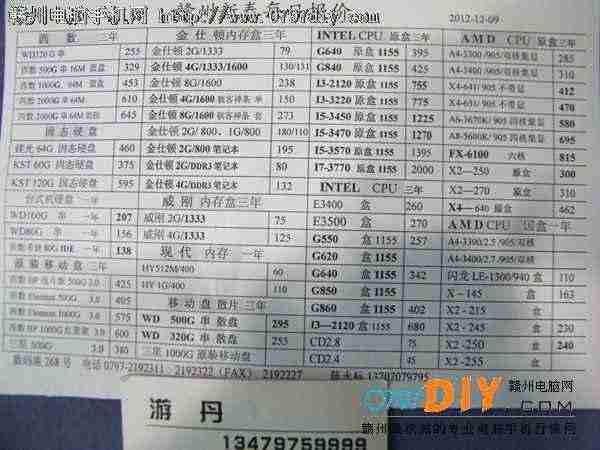 赣州电脑手机网
赣州新春布贝报价
2012-12-09
西 数 三年
WD320G串 255
西数 500G 串 16M 蓝盘 329
西数 1000G 串 64M 蓝盘 453
西数 2000G 串 64M 610
645
固态硬盘
镁光 64G 固态硬盘 460
KST 60G 固态硬盘 375
KST 120G 固态硬盘 595
台式机硬盘
WD160G 串 一年 207
WD80G 串 一年 156
80G IDE 一年 138
原装移动盘 三年
425
405
575
600
三星 500G 3.0 380
金 仕 顿内存盒三年
金仕顿 2G/1333 79
金仕顿 4G/1333/1600 130/131
金仕顿 8G/1600 238
金仕顿 4G/1600 骇客神条 单 150
金仕顿 8G/1600 骇客神条 套 273
金仕顿 2G/800、1G/800 180/110
金仕顿 2G/800 笔记本 195
金仕顿 2G/DDR3 笔记本 80
金仕顿 4G/DDR3 笔记本 132
威 刚 内存盒三年
威刚 2G/1333 75
威刚 4G/1333 125
现 代 内存 一年
HY512M/400 60
HY1G/400 110
移 动 盘 散片 三年
WD 500G 串 散盘 295
WD 320G 串 散盘 255
三星 1000G 原装移动盘
INTEL CPU 原盒三年
G640 原盒 1155 395
G840 原盒 1155 425
I3-2120 原盒 1155 755
I3-3220 原盒 1155 775
I5-3450 原盒 1155 1225
I5-3470 原盒 1155 1270
I5-3570 原盒 1155 1395
I7-3770 原盒 1155 2000
INTEL CPU 三年
E3400 盒 260
E3500 盒 270
G550 盒 1155 257
G620 盒 1155
G640 盒 1155 342
G850 盒 1155
G860 盒 1155 402
I3—2120 盒 1155 680
CD2.8 盒 75
CD2.4 盒 45
AMD CPU 原盒三年
A4-3300 /905/双核集显 285
A4-3400 /905/双核集显 310
X4-641/ 905 不带显 412
X4-651/ 905 不带显 470
A6-3670K/ 905 四核集显 580
A8-5600K/ 905 四核集显 695
FX-6100 六核 815
X2—250 原盒 300
X2—270 原盒 310
X4—640 原盒 462
AMD CPU 国盒一年
A4-3300/2.7 /905/双核
A4-3400/2.7 /905/双核
闪龙 LE-1300/940 盒 110
X－145 盒 163
X2 -215 盒
X2 -245 盒 230
X2 -250 盒 240
X2 -255 盒
数码港 268 号 电话 0797-2192311，2192322（FAX）2192227
13707079795
游 丹
13479759999
DIY 赣州电脑网
.COM